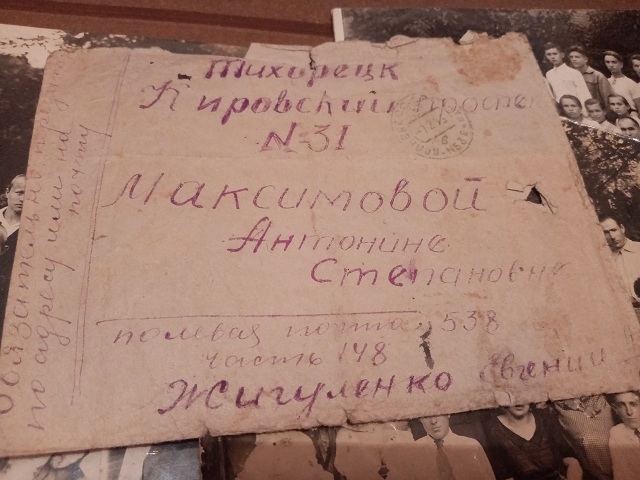 Тихорецк
Кировский
N-31
Максимовой
Антонине
Степановне
полевая почта 538
часть 148
Жигуленко Евгений
Обязательно
по адресу или на
почту